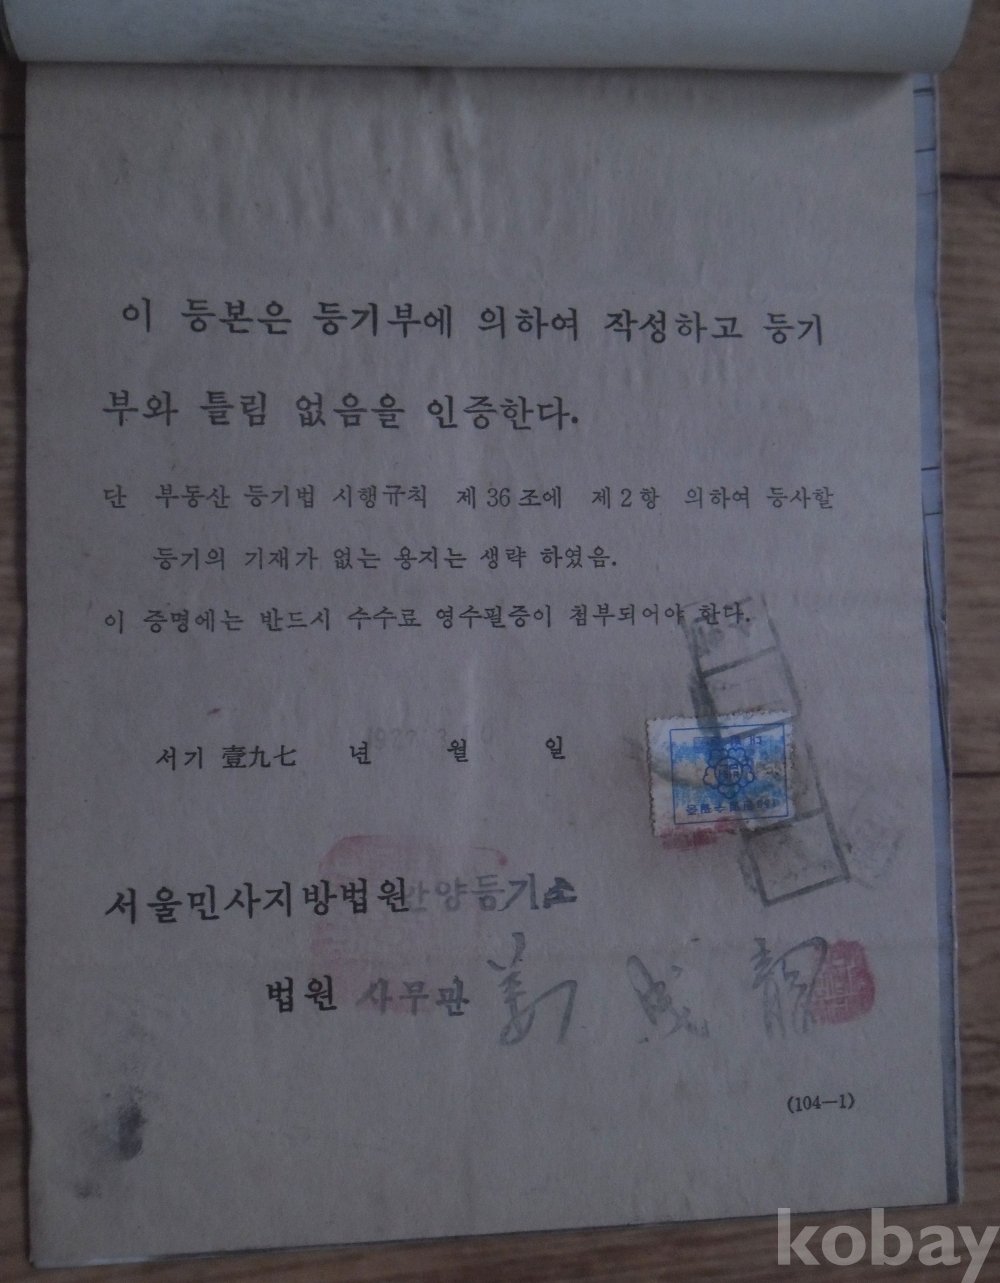 이 등본은 등기부에 의하여 작성하고 등기
부와 틀림 없음을 인증한다.
단 부동산 등기법 시행규칙 제36조에 제2항 의하여 등사할
등기의 기재가 없는 용지는 생략 하였음.
이 증명에는 반드시 수수료 영수필증이 첨부되어야 한다.
서기 壹九七 년 월 일
서울민사지방법원 안양등기소
법원 사무관 姜 成 龍
(104—1)
kobay